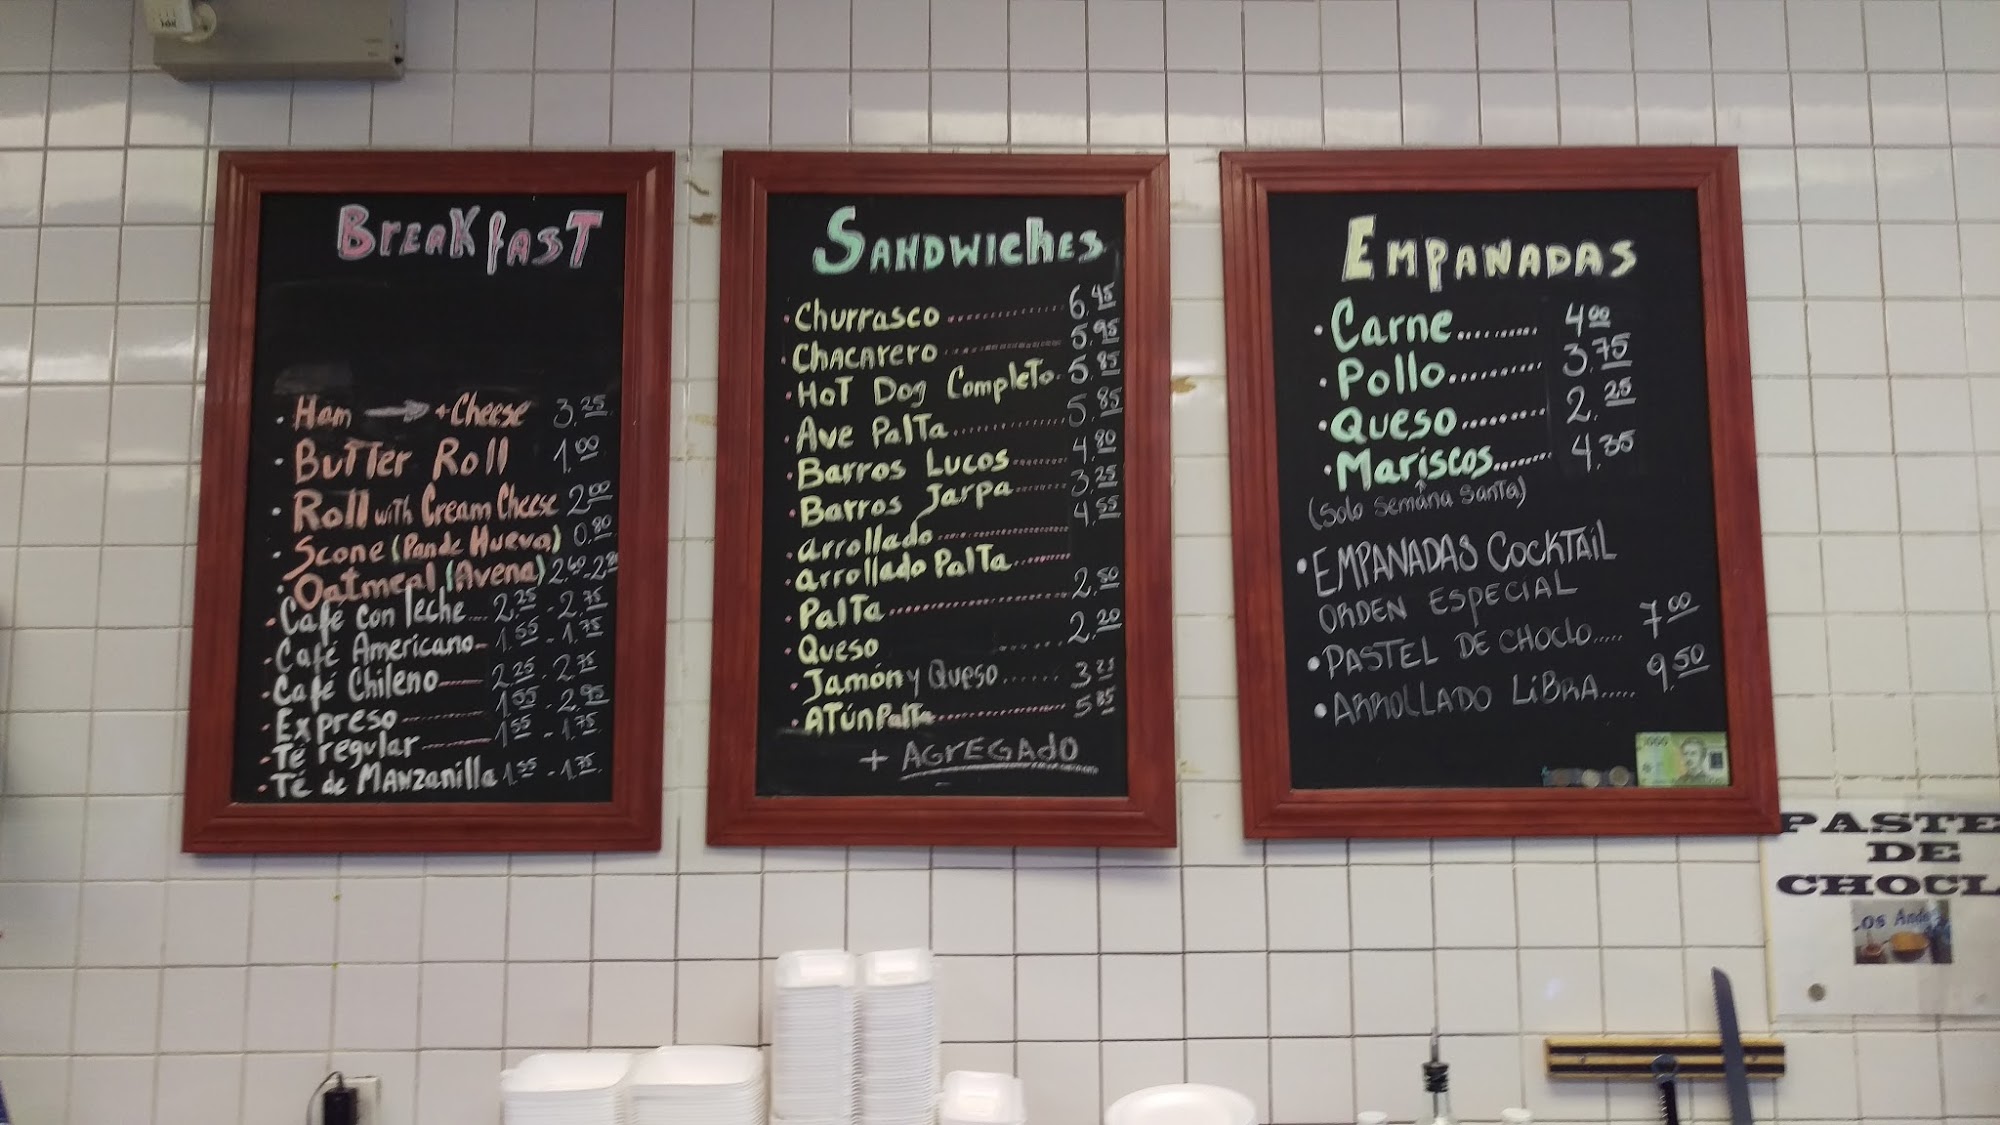 BreakfasT
· Ham + Cheese 3.25
· BuTTer Roll 1.00
· Roll wiTh Cream Cheese 2.00
· Scone (Pan de Huevo) 0.80
· Oatmeal (Avena) 2.60 - 2.80
· Café con leche... 2.25 - 2.75
· Café Americano- 1.55 - 1.75
· Café Chileno 2.25 - 2.75
· Expreso 1.55 - 2.95
· Té regular 1.55 - 1.75
· Té de MANzanilla 1.55 - 1.75
SANDWIChES
· Churrasco 6.45
· ChACArero 5.95
· HoT Dog CompleTo 5.85
· Ave PalTa 5.85
· Barros Lucos 4.80
· Barros Jarpa 3.25
· arrollado 4.55
· arrollado PalTa
· PalTa 2.50
· Queso 2.20
· Jamón y Queso 3.25
· ATúnPalTa 5.85
+ AGREGAdO
EMPANADAS
· Carne 4.00
· Pollo 3.75
· Queso 2.25
· Mariscos 4.35
(solo semana santa)
· EMPANADAS COCKTAiL
ORDEN ESPECiAL
· PASTEL DE CHOClO..... 7.00
· ARROLLADO LiBRA..... 9.50
1000
PASTE
DE
CHOCL
os Ande